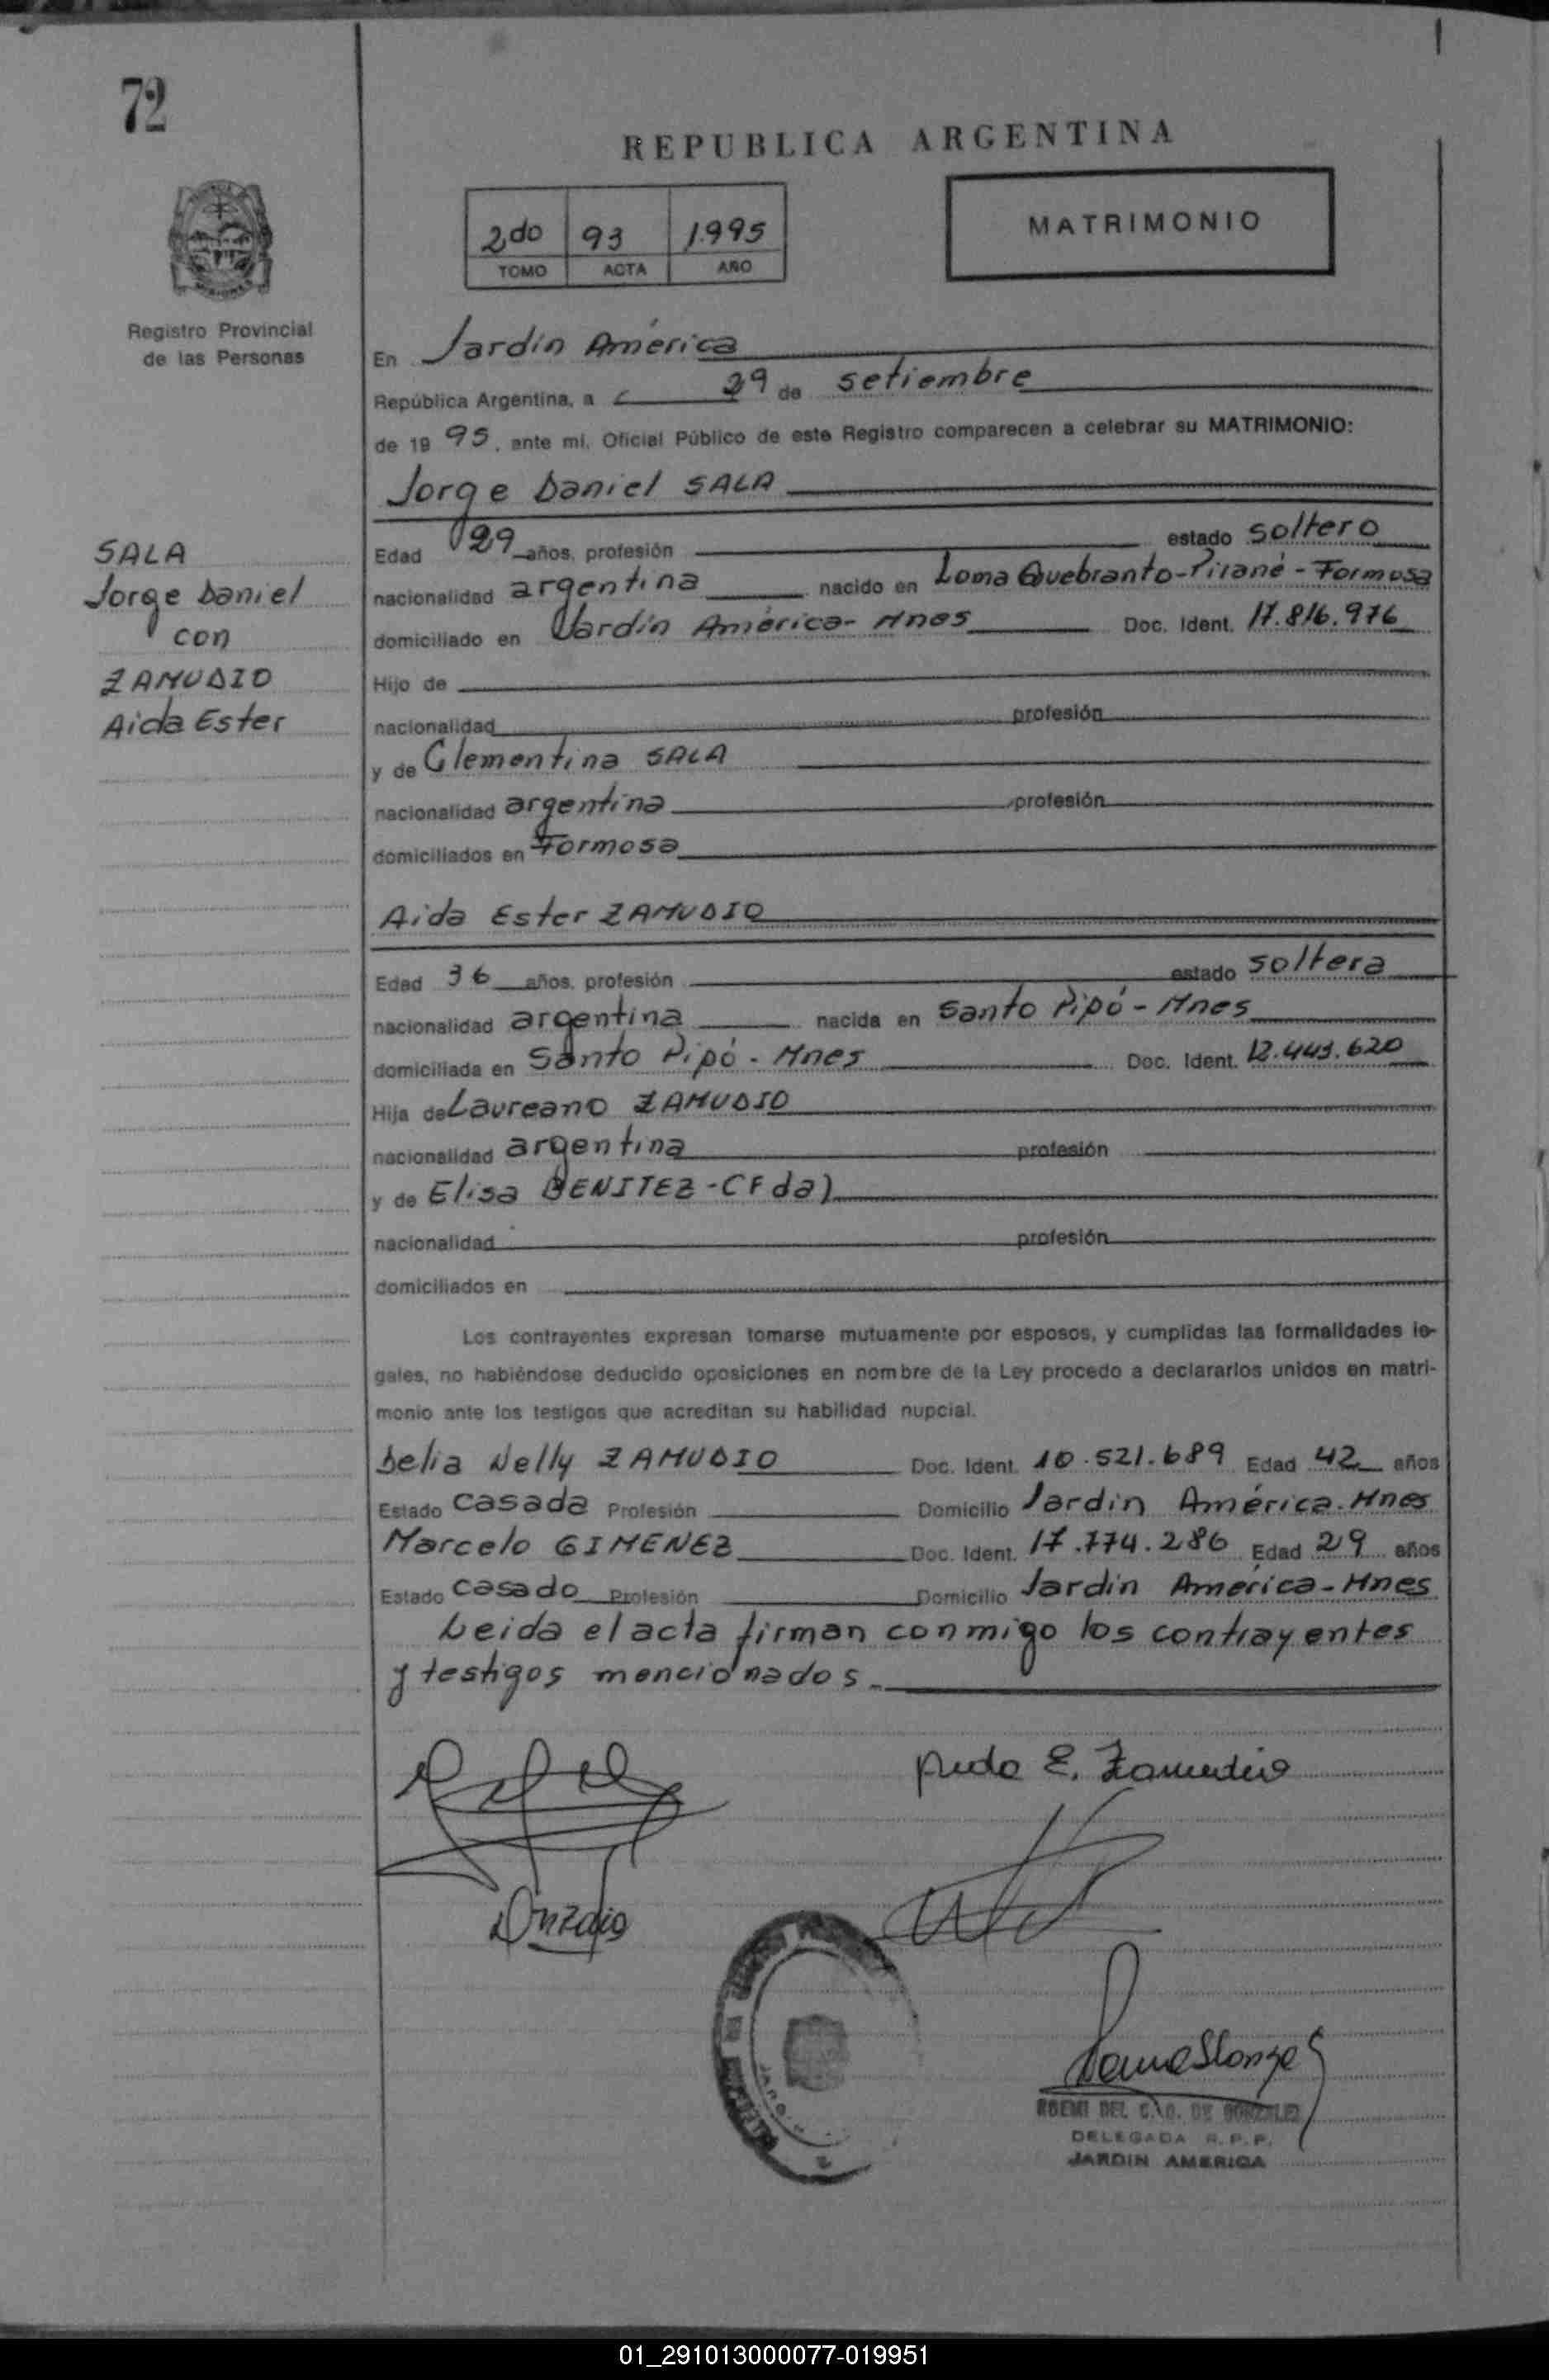 72
REPUBLICA ARGENTINA
2do 93 1.995
TOMO ACTA AÑO
MATRIMONIO
Registro Provincial
de las Personas
En Jardín América
República Argentina, a 29 de setiembre
de 1995, ante mí, Oficial Público de este Registro comparecen a celebrar su MATRIMONIO:
Jorge Daniel SALA
SALA
Jorge Daniel
con
ZAMUDIO
Aida Ester
Edad 29 años, profesión estado soltero
nacionalidad argentina nacido en Loma Quebranto-Pirané-Formosa
domiciliado en Jardín América-Mnes Doc. Ident. 17.816.976
Hijo de
nacionalidad profesión
y de Clementina SALA
nacionalidad argentina profesión
domiciliados en Formosa
Aida Ester ZAMUDIO
Edad 36 años, profesión estado soltera
nacionalidad argentina nacida en Santo Pipó-Mnes
domiciliada en Santo Pipó-Mnes Doc. Ident. 12.443.620
Hija de Laureano ZAMUDIO
nacionalidad argentina profesión
y de Elisa BENITEZ-(Fda)
nacionalidad profesión
domiciliados en
Los contrayentes expresan tomarse mutuamente por esposos, y cumplidas las formalidades le-
gales, no habiéndose deducido oposiciones en nombre de la Ley procedo a declararlos unidos en matri-
monio ante los testigos que acreditan su habilidad nupcial.
Delia Nelly ZAMUDIO Doc. Ident. 10.521.689 Edad 42 años
Estado casada Profesión Domicilio Jardín América.Mnes
Marcelo GIMENEZ Doc. Ident. 17.774.286 Edad 29 años
Estado casado Profesión Domicilio Jardín América-Mnes
Leida el acta firman conmigo los contrayentes
y testigos mencionados.
Aida E. Zamudio
DEL C. DE GONZALEZ
DELEGADA R. P. P.
JARDIN AMERICA
01_291013000077-019951